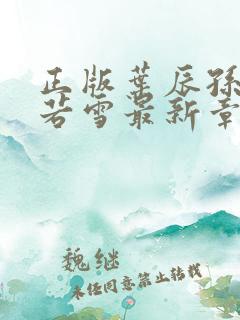 正版叶辰孙
若雪最新章
魏继
未经同意禁止转载